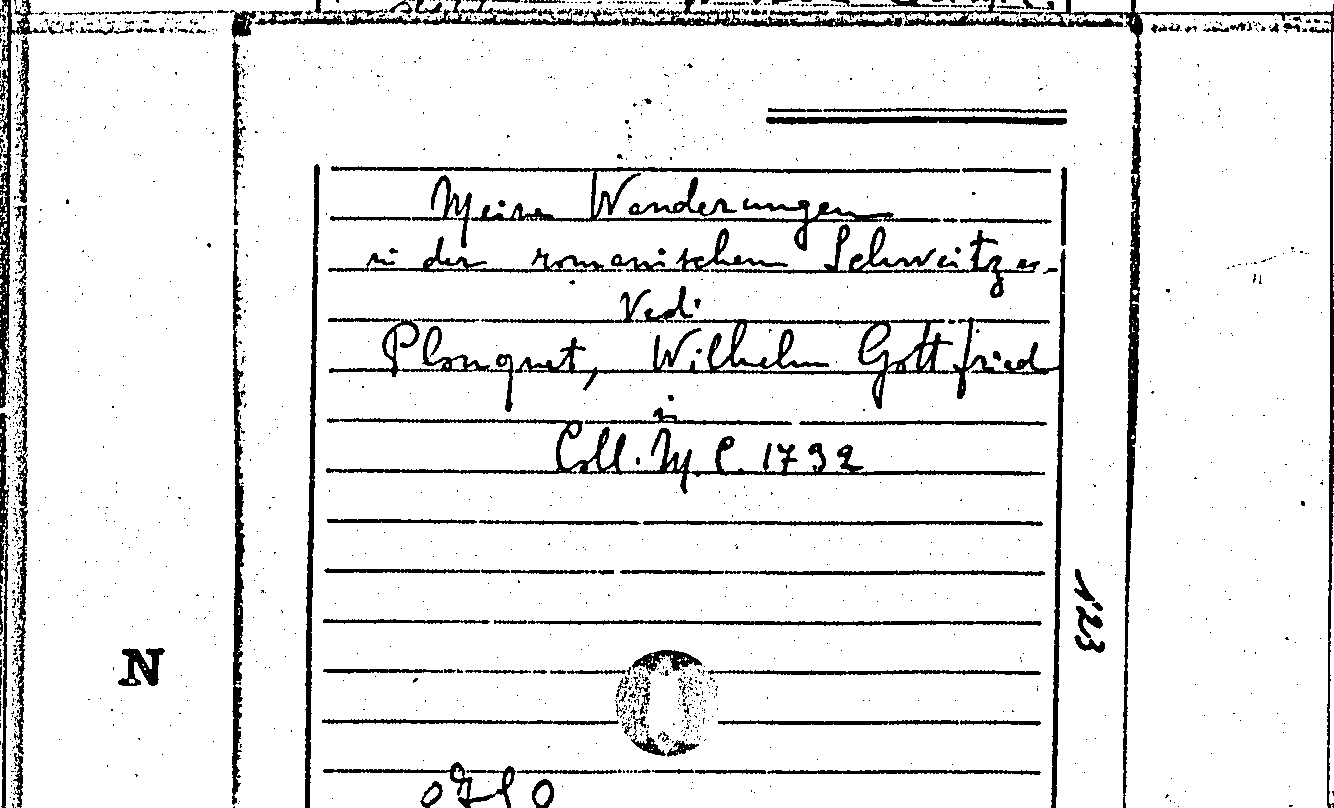 Meine Wanderungen
in der romanischen Schweitz er-
Vedi
Plouquet, Wilhelm Gottfried
in
Coll. M. C. 1732
123
N